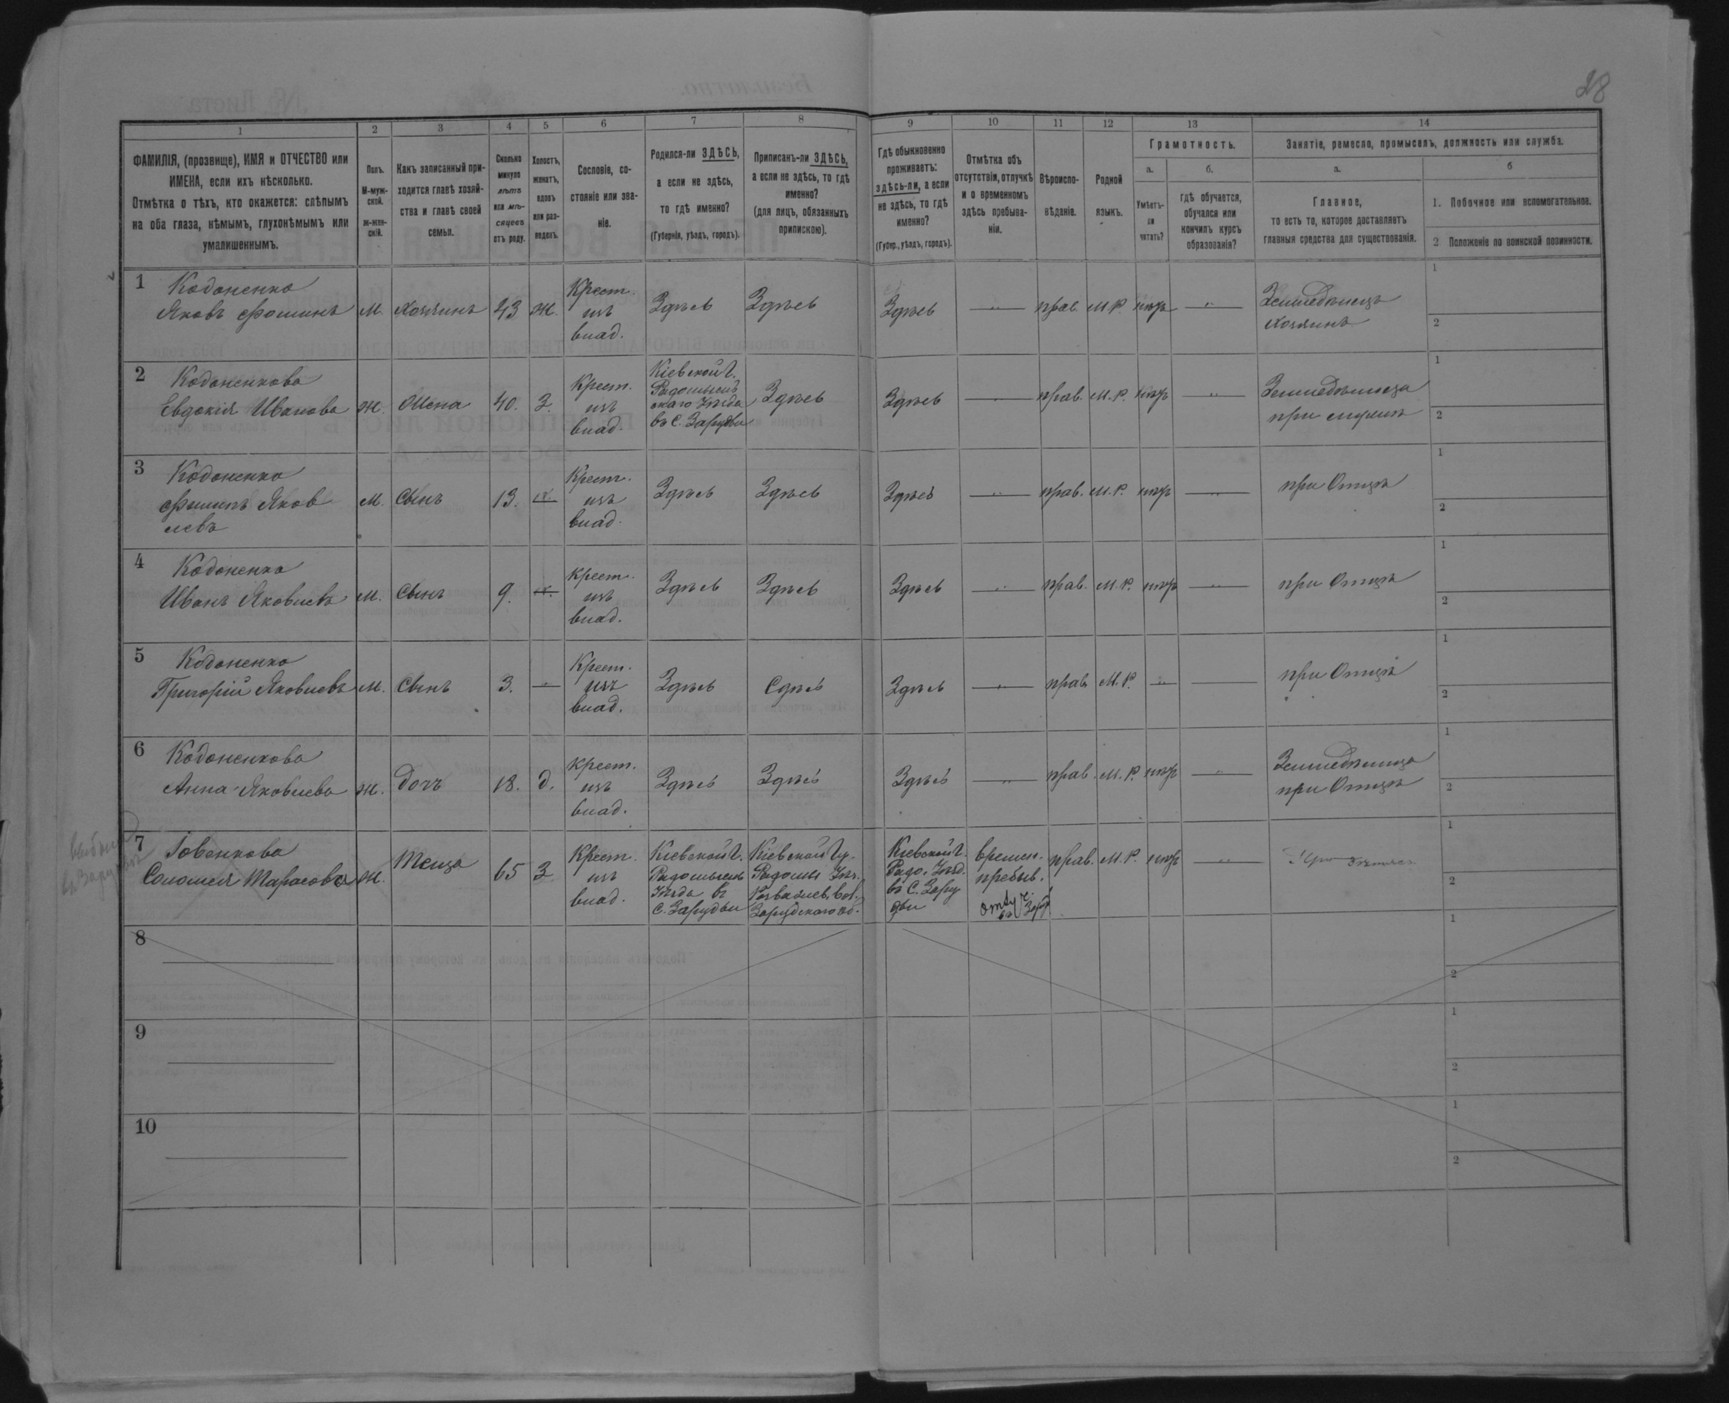 28
1 2 3 4 5 6 7 8 9 10 11 12 13 14
ФАМИЛІЯ, (прозвище), ИМЯ и ОТЧЕСТВО или
ИМЕНА, если ихъ нѣсколько.
Отмѣтка о тѣхъ, кто окажется: слѣпымъ
на оба глаза, нѣмымъ, глухонѣмымъ или
умалишеннымъ.
Полъ.
М-муж-
ской.
ж-жен-
скій.
Какъ записанный при-
ходится главѣ хозяй-
ства и главѣ своей
семьи.
Сколько
минуло
лѣтъ
или мѣ-
сяцевъ
отъ роду.
Холостъ,
женатъ,
вдовъ
или раз-
веденъ.
Сословіе, со-
стояніе или зва-
ніе.
Родился-ли ЗДѢСЬ,
а если не здѣсь,
то гдѣ именно?
(Губернія, уѣздъ, городъ).
Приписанъ-ли ЗДѢСЬ,
а если не здѣсь, то гдѣ
именно?
(для лицъ, обязанныхъ
припискою).
Гдѣ обыкновенно
проживаетъ:
здѣсь-ли, а если
не здѣсь, то гдѣ
именно?
(Губер., уѣздъ, городъ).
Отмѣтка объ
отсутствіи, отлучкѣ
и о временномъ
здѣсь пребыва-
ніи.
Вѣроиспо-
вѣданіе.
Родной
языкъ.
Грамотность.
а. б.
Умѣетъ-
ли
читать?
гдѣ обучается,
обучался или
кончилъ курсъ
образованія?
Занятіе, ремесло, промыселъ, должность или служба.
а. б
Главное,
то есть то, которое доставляетъ
главныя средства для существованія.
1. Побочное или вспомогательное.
2 Положеніе по воинской повинности.
1 Кодоненко
Яковъ Фоминъ м. Хозяинъ 43 ж. Крест.
изъ
влад. Здѣсь Здѣсь Здѣсь — " — прав. М.Р. нѣтъ — " — Земледѣлецъ
Хозяинъ 1
2
2 Кодоненкова
Евдокія Иванова ж. Жена 40. З. Крест.
изъ
влад. Кіевской Г.
Радомысль
скаго Уѣзда
въ С. Зарудьи Здѣсь Здѣсь — прав. М.Р. нѣтъ — " — Земледѣлица
при мужѣ 1
2
3 Кодоненко
Фоминъ Яков
левъ м. Сынъ 13. х. Крест.
изъ
влад. Здѣсь Здѣсь Здѣсь — " — прав. М.Р. нѣтъ — " — при Отцѣ 1
2
4 Кодоненко
Иванъ Яковлевъ м. Сынъ 9. х. крест.
изъ
влад. Здѣсь Здѣсь Здѣсь — " — прав. М.Р. нѣтъ — " — при Отцѣ 1
2
5 Кодоненко
Григорій Яковлевъ м. Сынъ 3. — Крест.
изъ
влад. Здѣсь Сдѣсь Здѣсь — " — прав. М.Р. — " — при Отцѣ 1
2
6 Кодоненкова
Анна Яковлева ж. дочь 18. д. крест.
изъ
влад. Здѣсь Здѣсь Здѣсь — " — прав. М.Р. нѣтъ — " — Земледѣлица
при Отцѣ 1
2
7 Говенкова
Соломея Тарасова ж. Теща 65 З Крест.
изъ
влад. Кіевской Г.
Радомысль
Уѣзда въ
С. Зарудьи Кіевской Гу.
Радомы Уѣз.
Зарудскаго об. Кіевской Г.
Радо. Уѣзд.
въ С. Зару
дьи времен.
пребыв. прав. М.Р. нѣтъ — " — 1
2
8 1
2
9 1
2
10 1
2